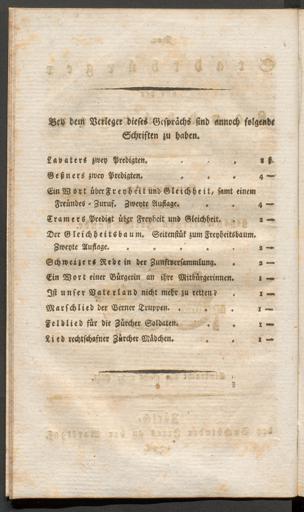 Bey dem Verleger dieses Gesprächs sind annoch folgende
Schriften zu haben.
Lavaters zwey Predigten. . . . 8 ß.
Geßners zwey Predigten. . . . 4 —
Ein Wort über Freyheit und Gleichheit, samt einem
Freundes-Zuruf. Zweyte Auflage. . . . 4 —
Cramers Predigt über Freyheit und Gleichheit. . 2 —
Der Gleichheitsbaum. Seitenstük zum Freyheitsbaum.
Zweyte Auflage. . . . . 2 —
Schweizers Rede in der Zunftversammlung. . 2 —
Ein Wort einer Bürgerin an ihre Mitbürgerinnen. . 1 —
Ist unser Vaterland nicht mehr zu retten? . 1 —
Marschlied der Berner Truppen. . . . 1 —
Feldlied für die Zürcher Soldaten. . . 1 —
Lied rechtschafner Zürcher Mädchen. . . 1 —